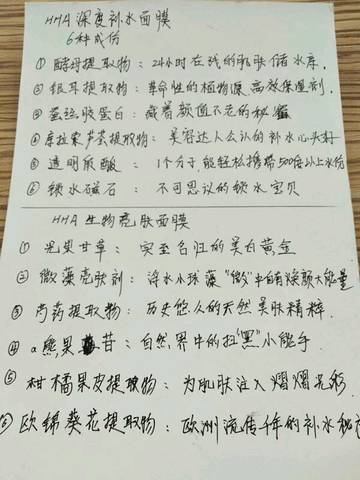 HHA深度补水面膜
6种成份
① 酵母提取物：24小时在线的肌肤储水库.
② 银耳提取物：革命性的植物源高效保湿剂.
③ 蛋运胶蛋白：藏着颜值不老的秘蜜
④ 库拉索芦荟提取物：美容达人公认的补水心头好
⑤ 透明尿酸：1个分子,能轻松携带500倍以上水份
⑥ 锁水磁石：不可思议的锁水宝贝
HHA生物亮肤面膜
① 光果甘草：实至名归的美白黄金
② 微藻亮肤剂：浮水小球藻“微”中的焕颜大能量
③ 芍药提取物：历史悠久的天然美肤精粹.
④ α熊果苷：自然界中的扫“黑”小能手.
⑤ 柑橘果皮提取物：为肌肤注入熠熠光彩.
⑥ 欧锦葵花提取物：欧洲流传千年的补水秘